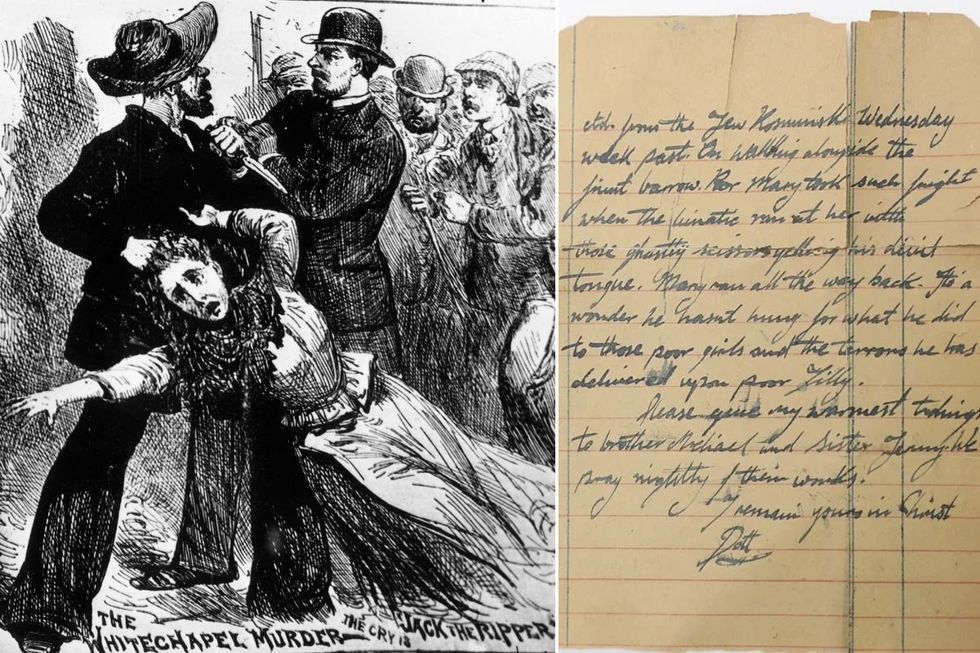 THE
WHITECHAPEL MURDER THE CRY IS "JACK THE RIPPER"
from the Jew Kosminski Wednesday
week past. On walking alongside the
fruit barrow. Mary took such fright
when the lunatic ran at her with
those ghastly scissors yelling his devil
tongue. Mary ran all the way back. It's a
wonder he hasnt hung for what he did
to those poor girls and the terrors he has
delivered upon poor Tilly.
Please give my warmest tidings
to brother Michael and Sister
pray nightly their
I remain yours in Christ